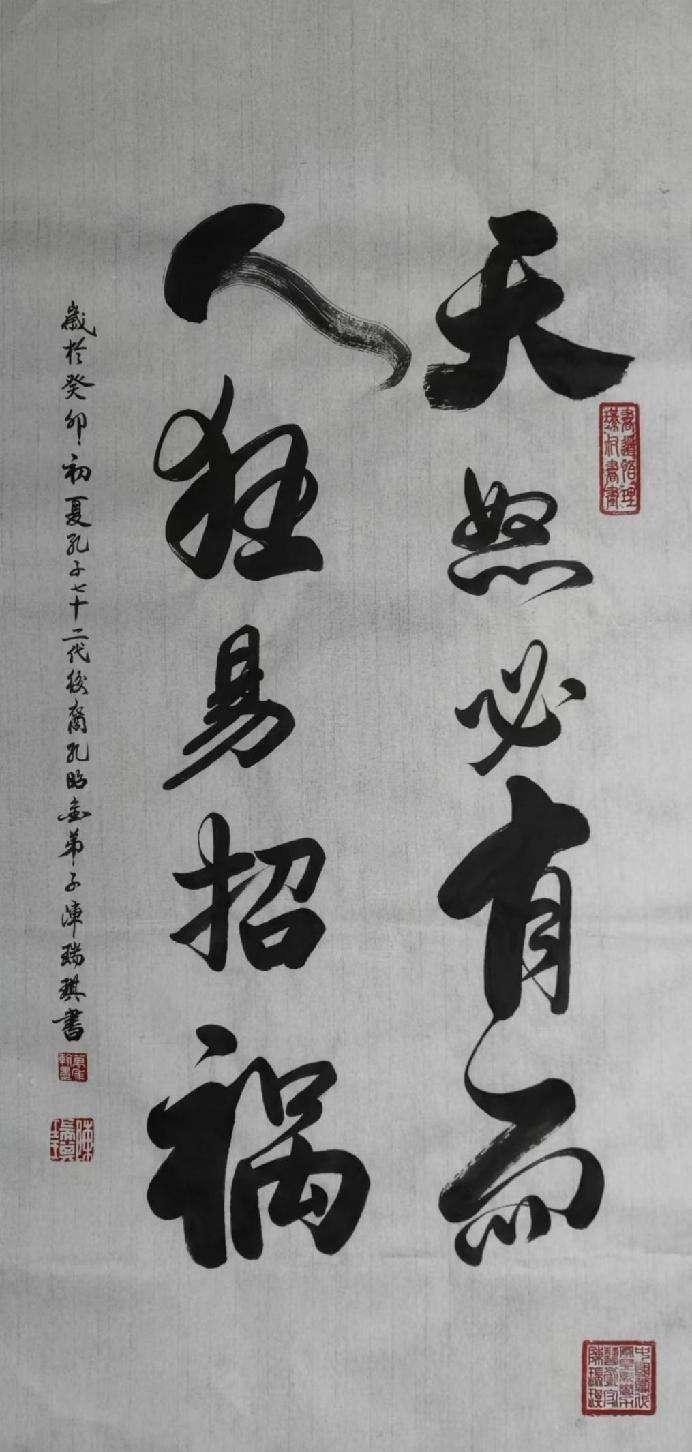 天怒必有雨
人狂易招祸
歲於癸卯初夏孔子七十二代後裔孔昭金弟子陳瑞琪書